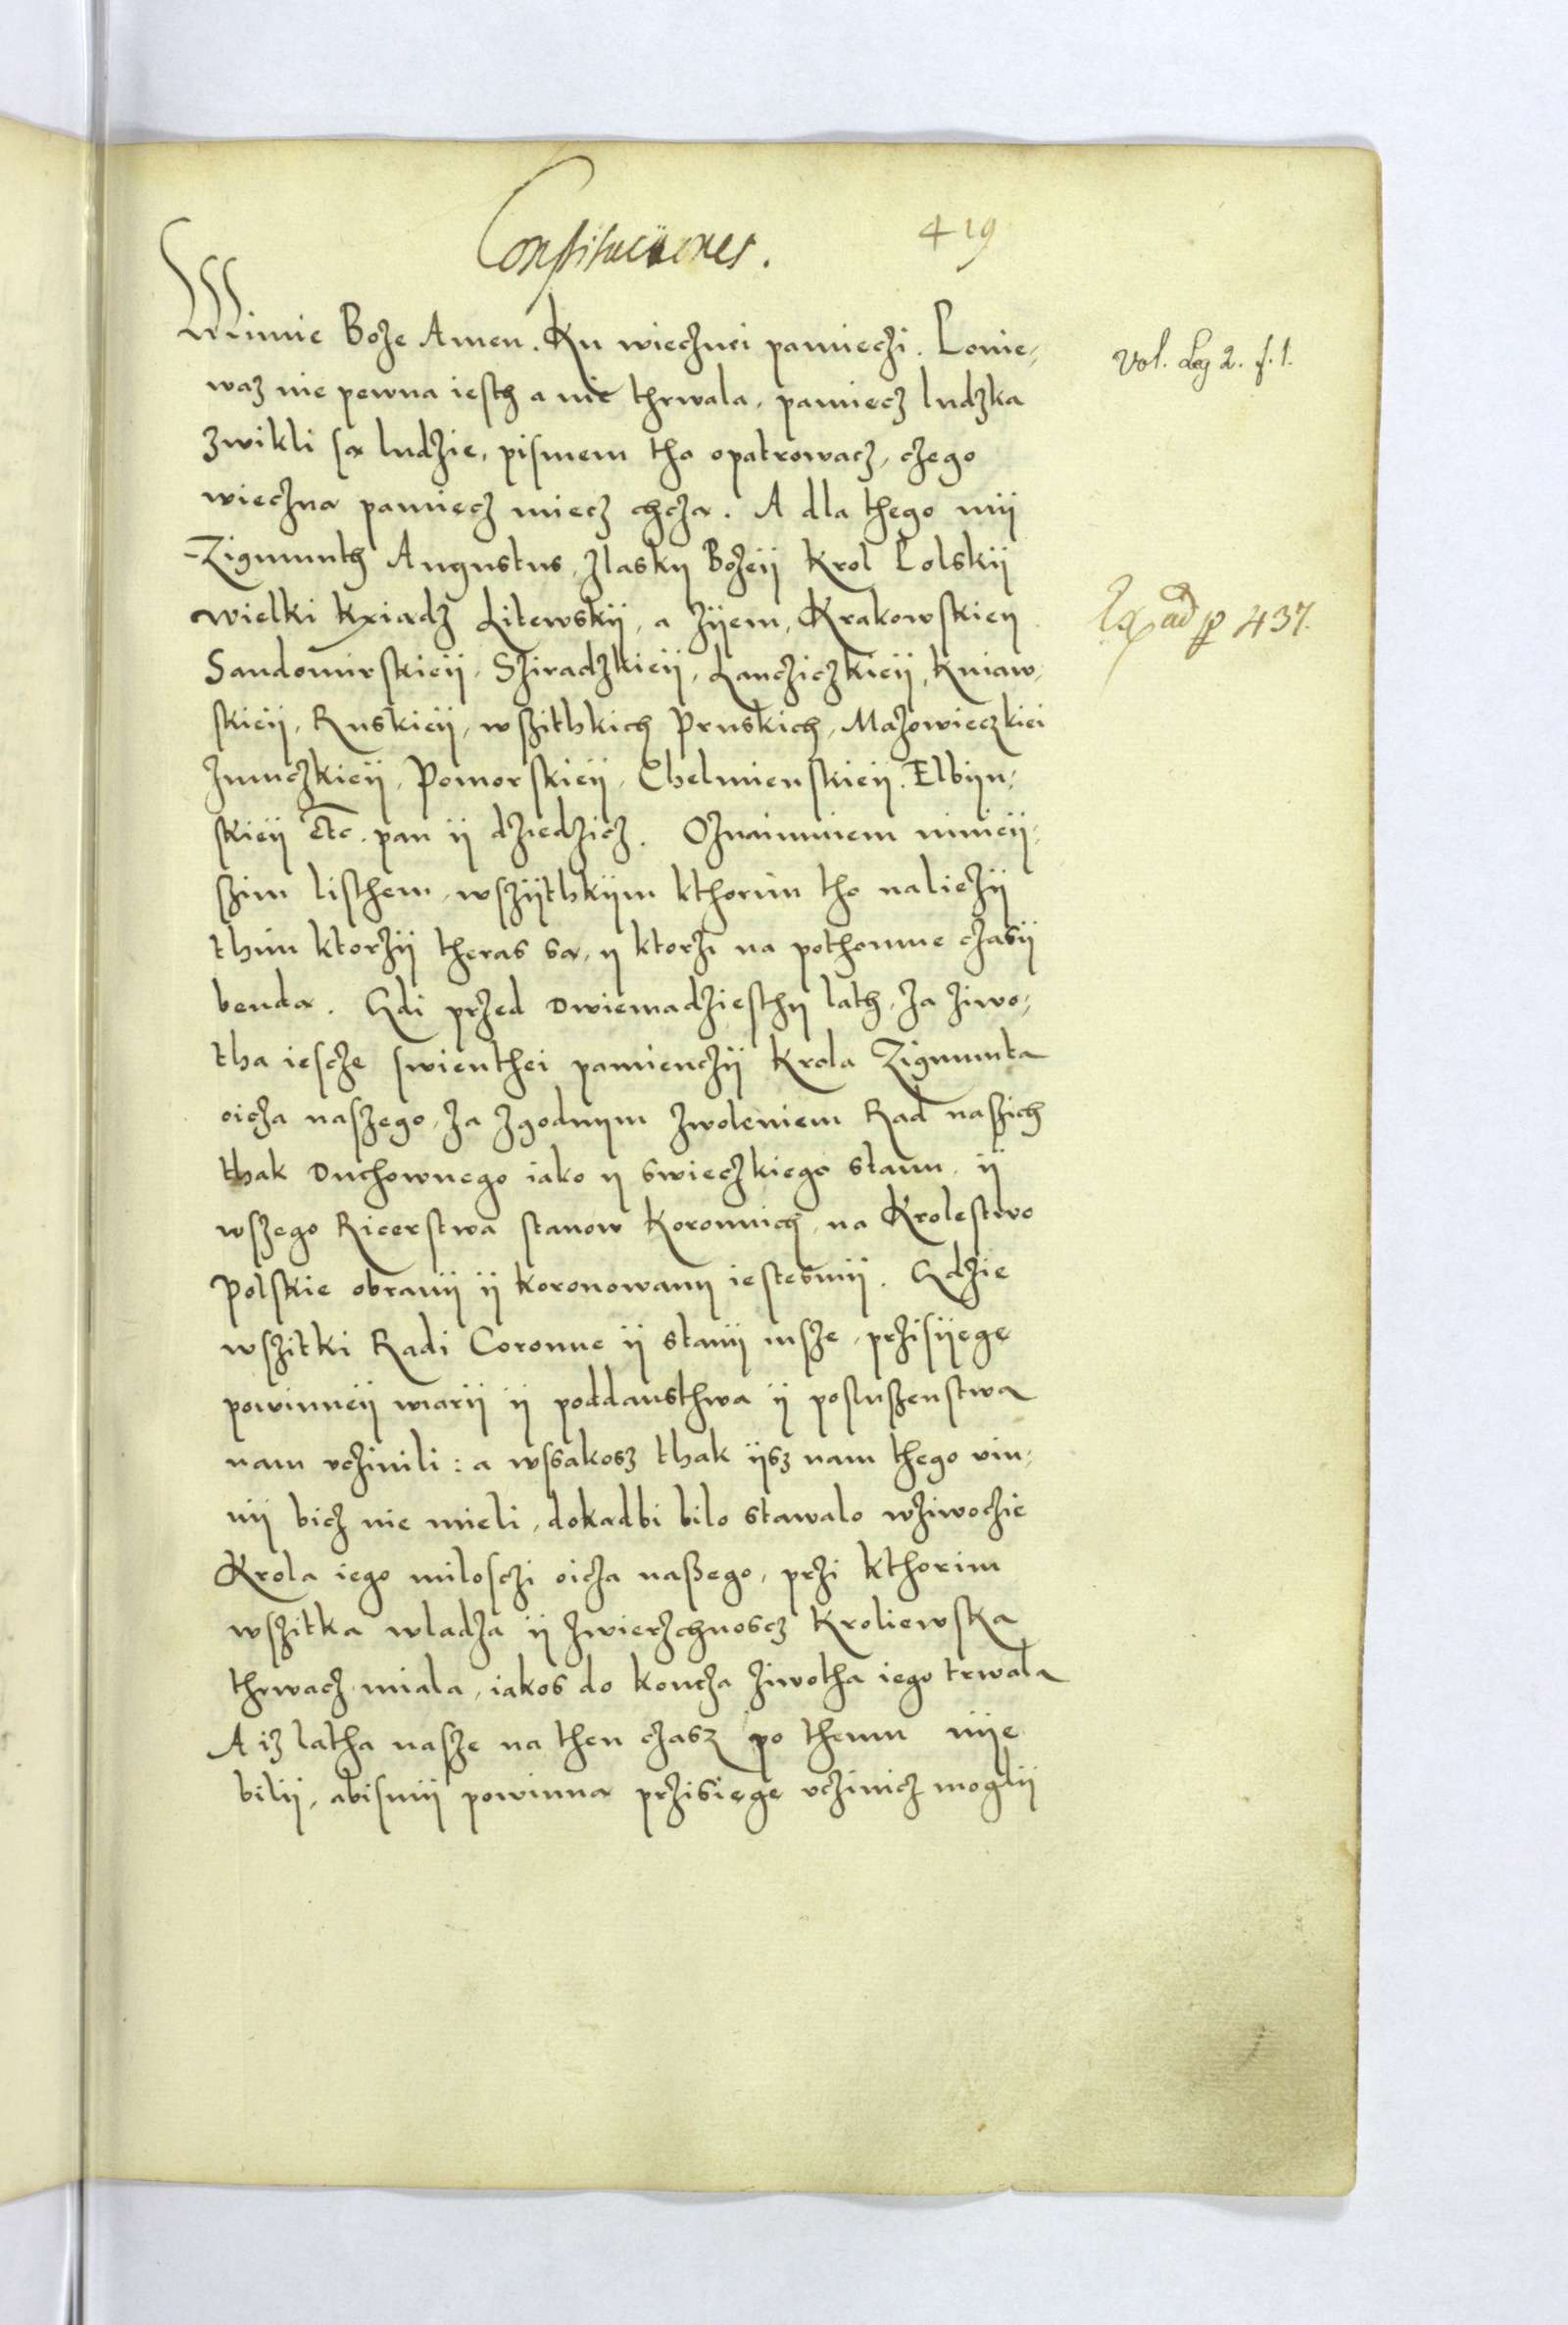 Constituciones.
419
W imie Boże Amen. Ku wiecżnei pamieċżi. Ponie-
waz nie pewna iesth a nie thrwala, pamiecz ludzka
zwikli sa ludzie, pismem tho opatrowacz, czego
wieczna pamiecz miecz chcza. A dla thego mÿ
Zigmunth Augustus, zlasky Bożeÿ Krol Polskÿ
wielki kxiadz Litewskÿ, a zÿem, Krakowskiey
Sandomirskieÿ, Sziradzkieÿ, Lancziczkieÿ, Kuiaw-
skieÿ, Ruskieÿ, wszithkich Pruskich, Mazowieczkiei
Zmuczkieÿ, Pomorskieÿ, Chelmienskieÿ. Elbÿn-
skieÿ etc. pan ÿ dziedzicz. Oznaimuiem ninieÿ-
szim listhem, wszÿthkÿm kthorim tho naliezÿ
thim ktorzÿ theras sa, y ktorzi na pothomne czasÿ
benda. Gdi przed dwiemadziesthy lath, za ziwo-
tha iescze swienthei pamienczÿ Krola Zigmunta
oicza naszego, za zgodnym zwoleniem Rad naszich
thak Duchownego iako y swieczkiego stanu, ÿ
wszego Ricerstwa stanow koronnich, na Krolestwo
Polskie obranÿ ÿ koronowany iestesmÿ. Gdzie
wszitki Radi Coronne ÿ stanÿ insze, przisÿege
powinneÿ wiarÿ ÿ poddansthwa ÿ posluszenstwa
nam vczinili: a wssakosz thak ÿsz nam thego vin-
nÿ bicz nie mieli, dokadbi bilo stawalo wziwoczie
Krola iego milosczi oicza naszego, przi kthorim
wszitka wladza ÿ zwierzchnoscz kroliewska
thrwacz miala, iakos do koncza ziwotha iego trwala
A iz latha nasze na then czasz po themu nÿe
bilÿ, abismÿ powinna przisiege vczinicz moglÿ
Vol. Leg 2. f. 1.
ad p 437.